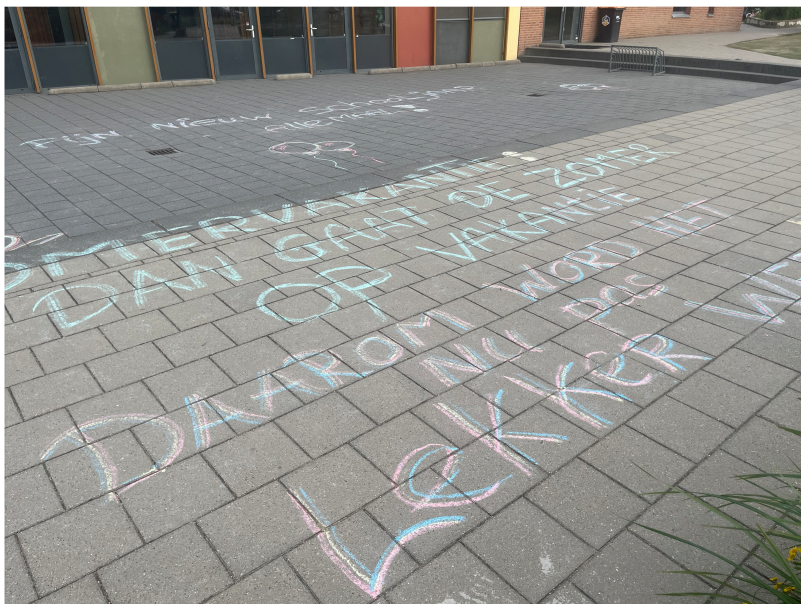 FIJN NIEUW SCHOOLJAAR
ALLEMAAL!
ZOMERVAKANTIE
DAN GAAT DE ZOMER
OP VAKANTIE
DAAROM WORD HET
NU PAS
LEKKER